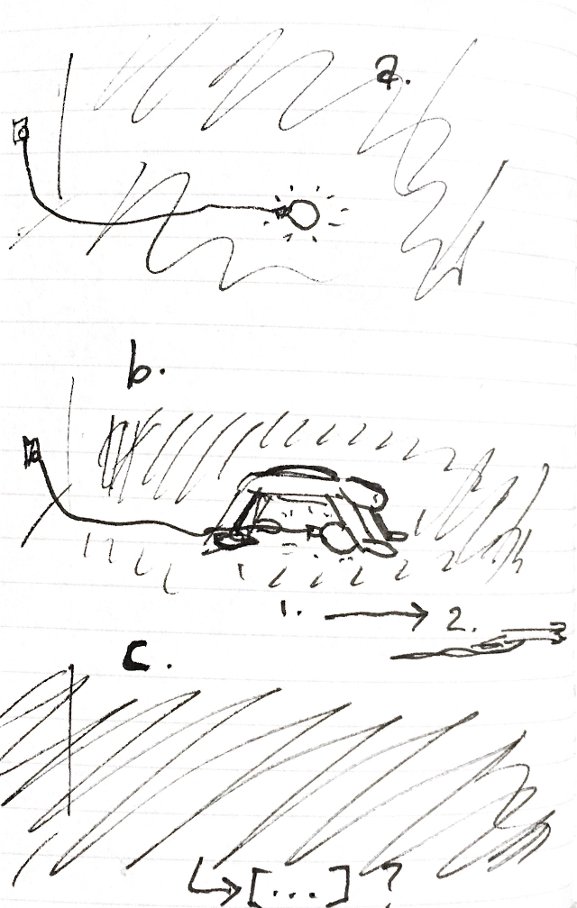 a.
b.
1. → 2.
c.
↳ [...] ?